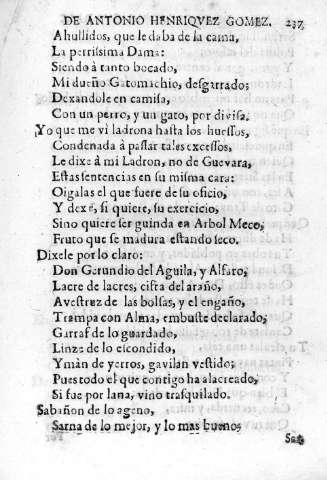 DE ANTONIO HENRIQVEZ GOMEZ. 237
Ahullidos, que le daba de la cama,
La perrissima Dama:
Siendo à tanto bocado,
Mi dueño Gatomachio, desgarrado;
Dexandole en camisa,
Con un perro, y un gato, por divisa.
Yo que me vi ladrona hasta los huessos,
Condenada à passar tales excessos,
Le dixe à mi Ladron, no de Guevara,
Estas sentencias en su misma cara:
Oigalas el que fuere de su oficio,
Y dexe, si quiere, su exercicio,
Sino quiere ser guinda en Arbol Meco,
Fruto que se madura estando seco.
Dixele por lo claro:
Don Gerundio del Aguila, y Alfaro,
Lacre de lacres, cifra del araño,
Avestruz de las bolsas, y el engaño,
Trampa con Alma, embuste declarado,
Garraf de lo guardado,
Linze de lo escondido,
Ymàn de yerros, gavilan vestido;
Pues todo el que contigo ha alacreado,
Si fue por lana, vino trasquilado.
Sabañon de lo ageno,
Sarna de lo mejor, y lo mas bueno;